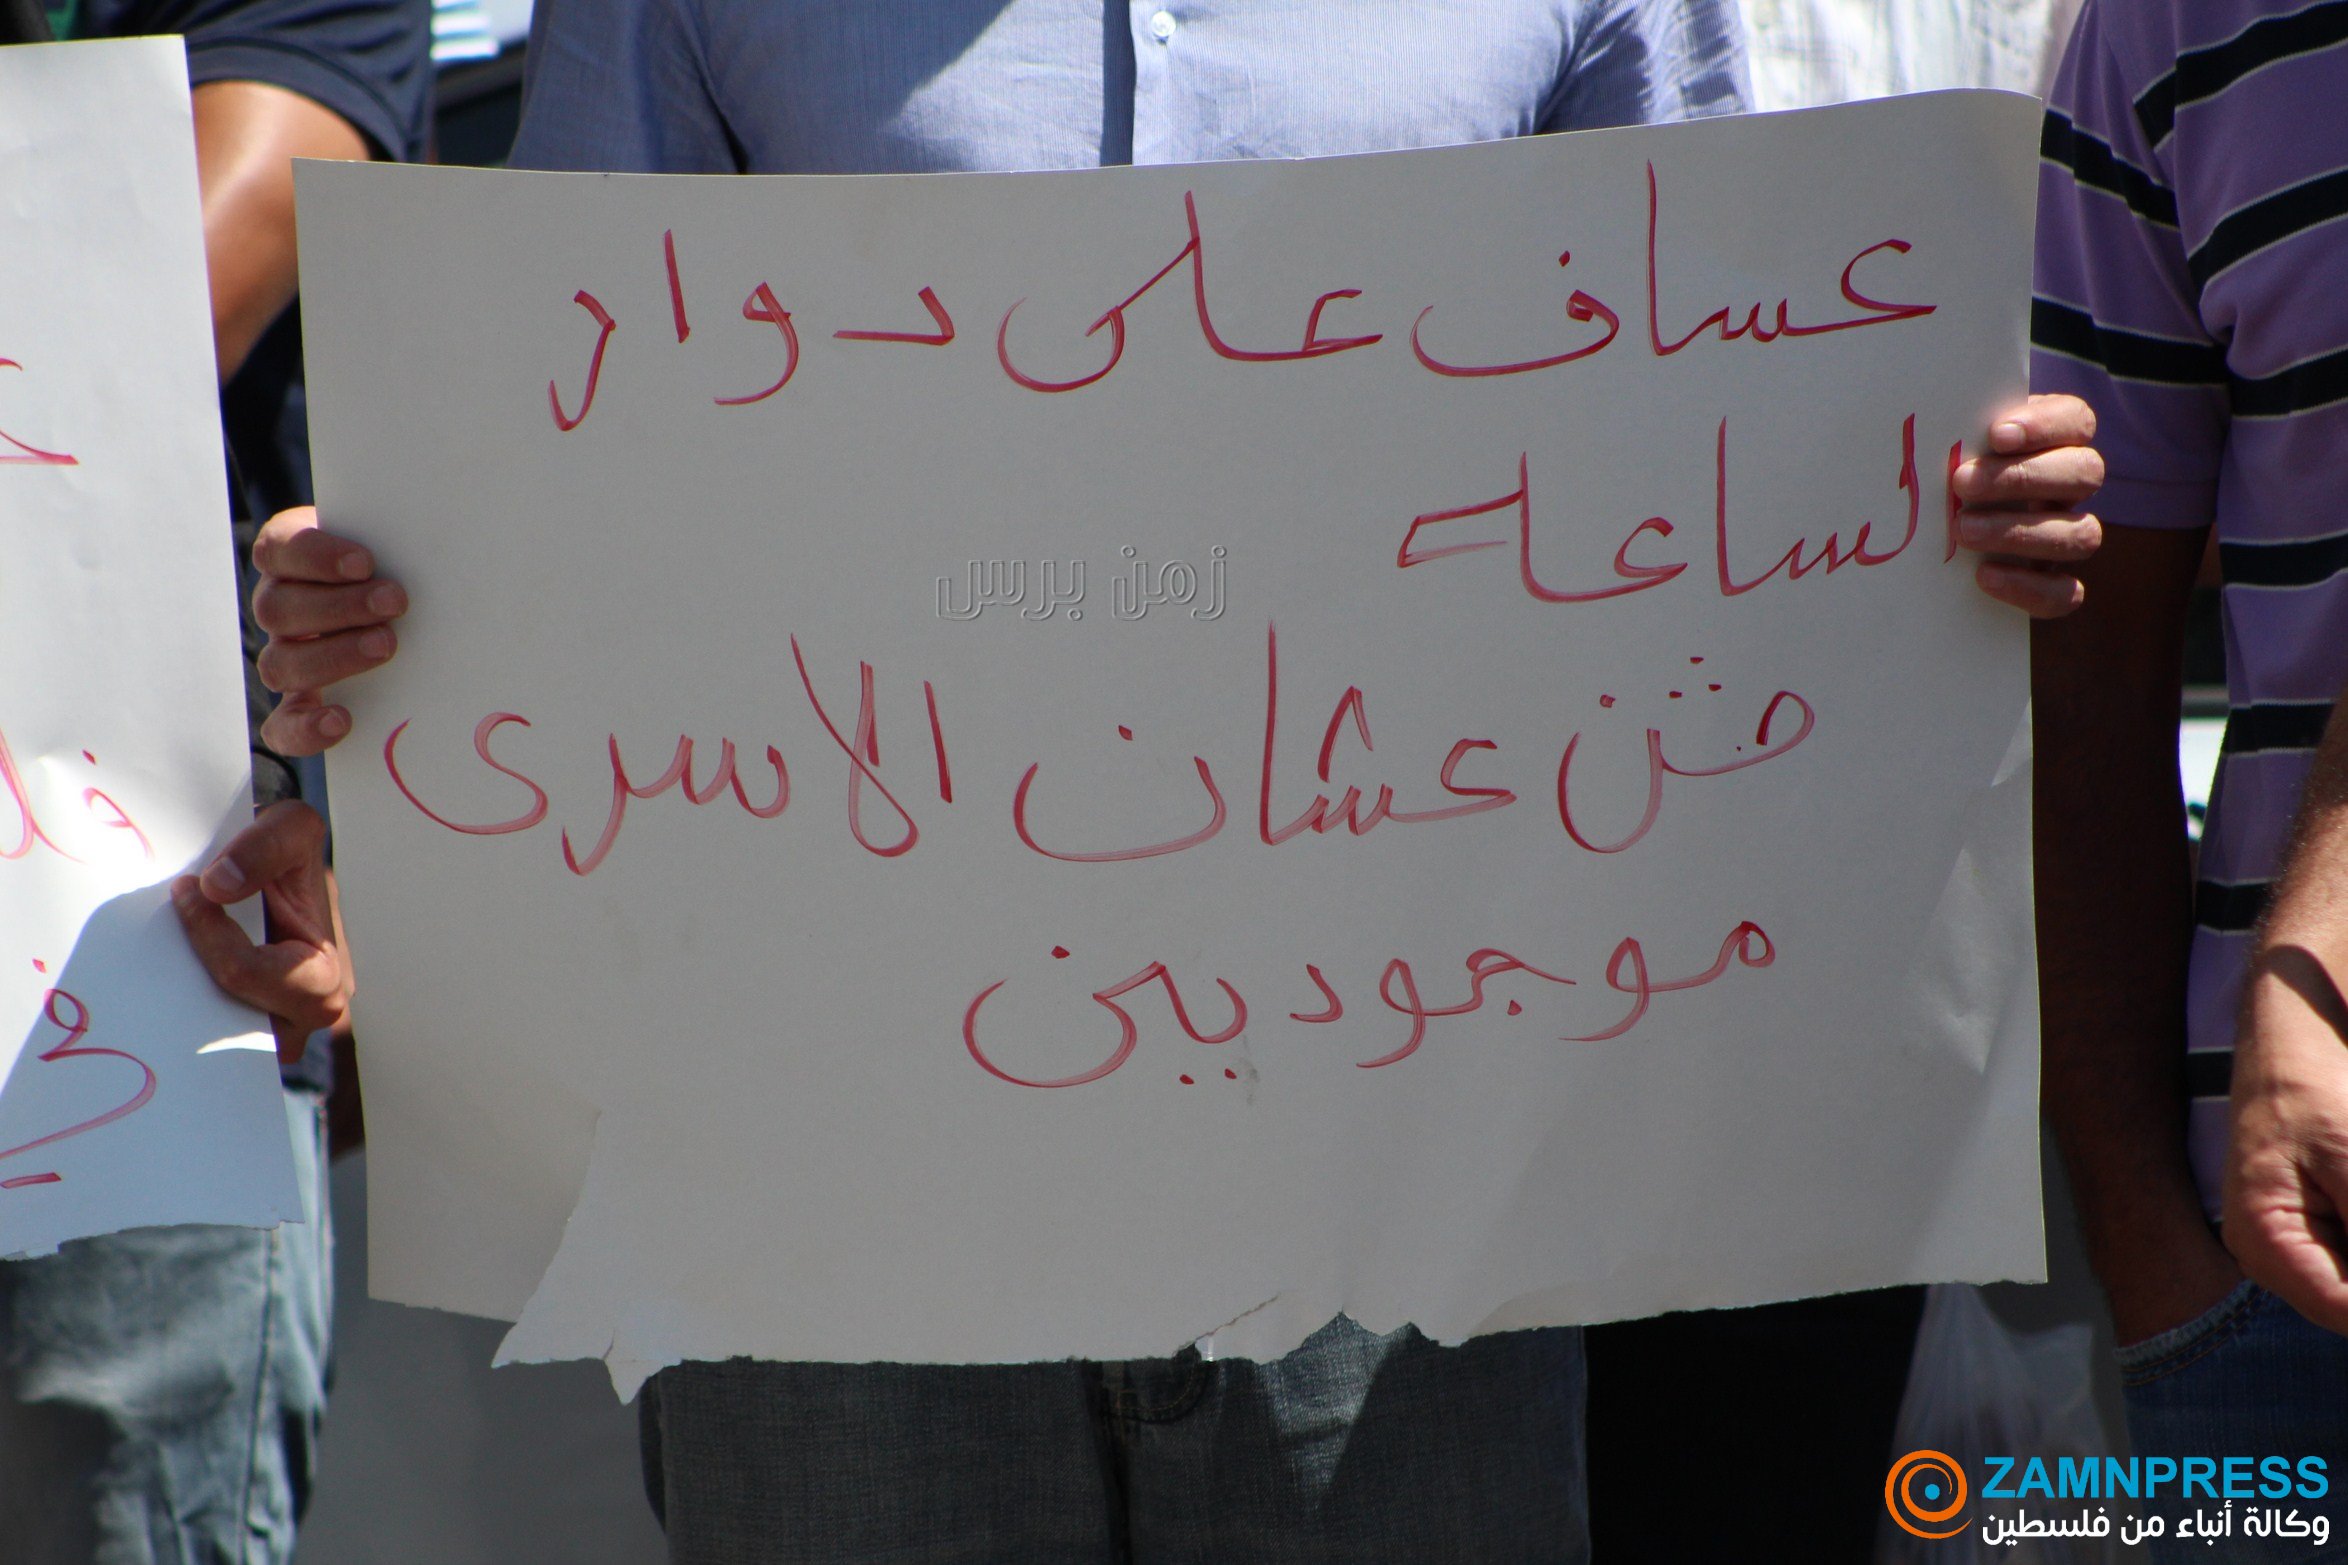 عساف على دوار
الساعه
مش عشان الاسرى
موجودين
زمن برس
ZAMNPRESS
وكالة أنباء من فلسطين